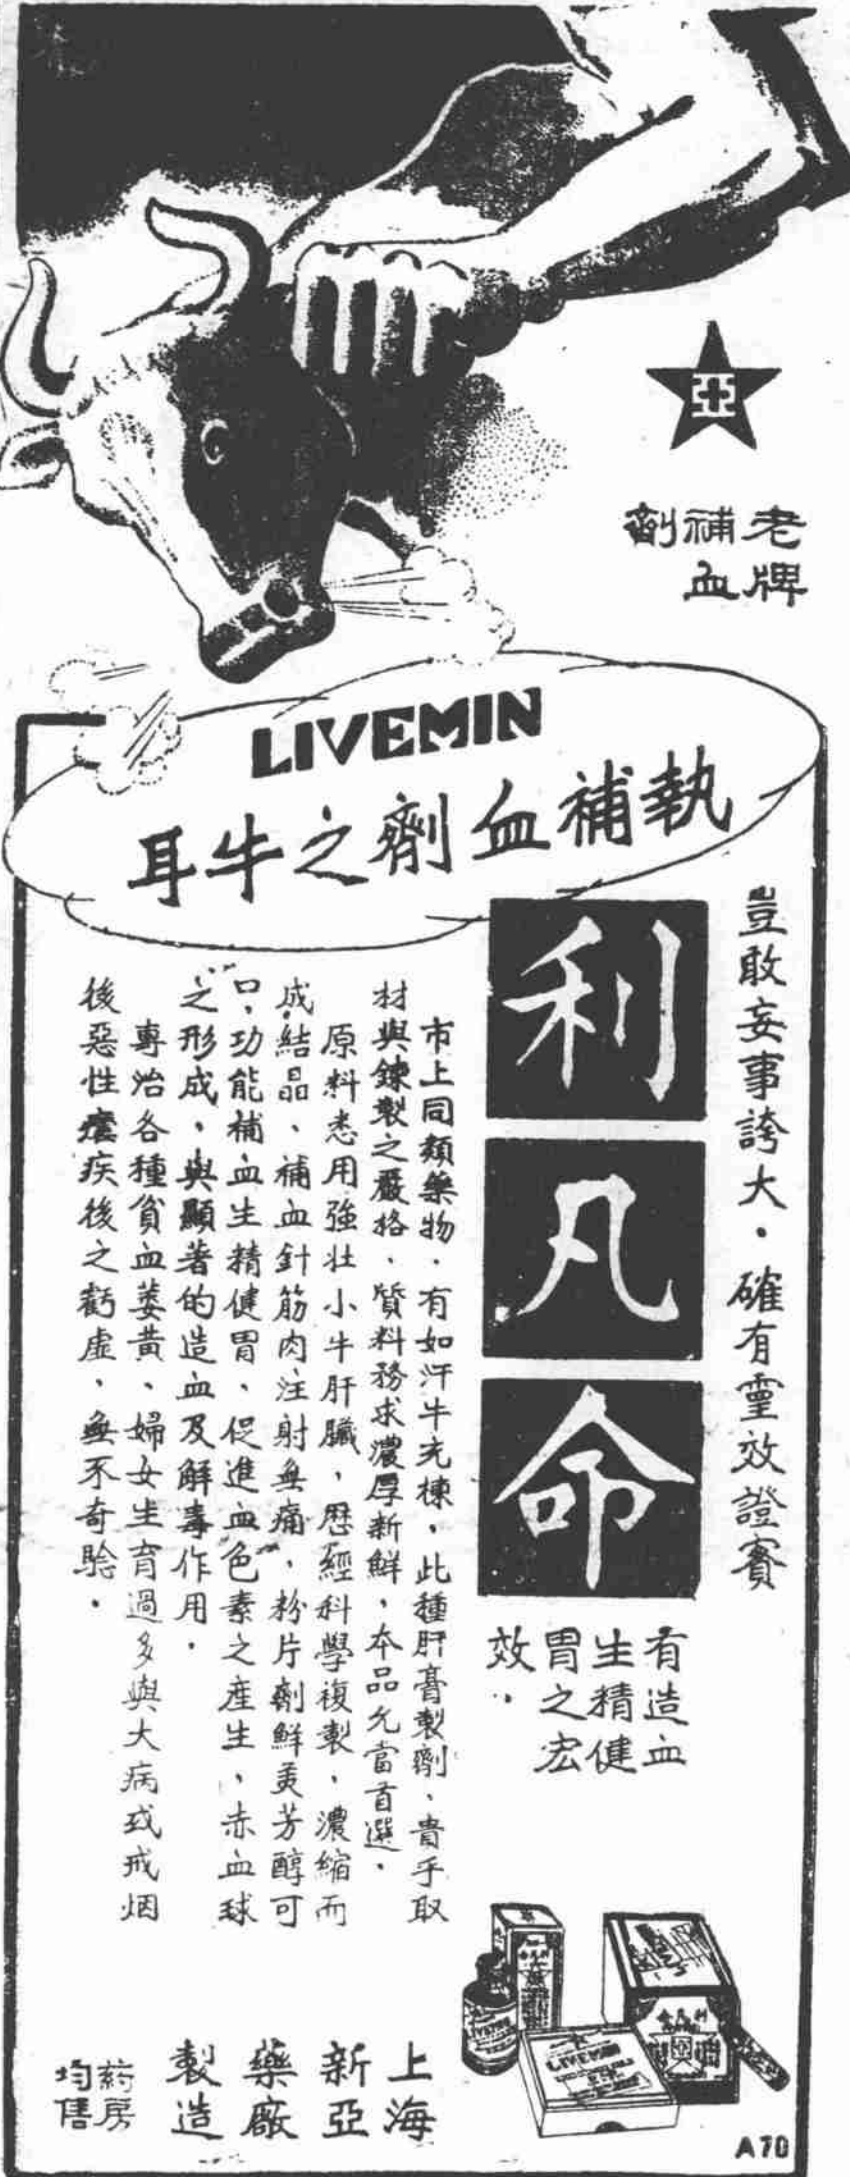 亞
老牌
補血
劑
LIVEMIN
執補血劑之牛耳
豈敢妄事誇大·確有靈效證實
利凡命
有造血
生精健
胃之宏
效·
市上同類藥物·有如汗牛充棟·此種肝膏製劑·貴乎取
材與鍊製之嚴格·質料務求濃厚新鮮·本品允當首選·
原料悉用強壯小牛肝臟·歷經科學複製·濃縮而
成結晶·補血針筋肉注射無痛·粉片劑鮮美芳醇可
口·功能補血生精健胃·促進血色素之產生·赤血球
之形成·與顯著的造血及解毒作用·
專治各種貧血萎黃·婦女生育過多與大病或戒烟
後惡性瘧疾後之虧虛·無不奇驗·
上海
新亞
藥廠
製造
葯房
均售
LIVEMIN
A70